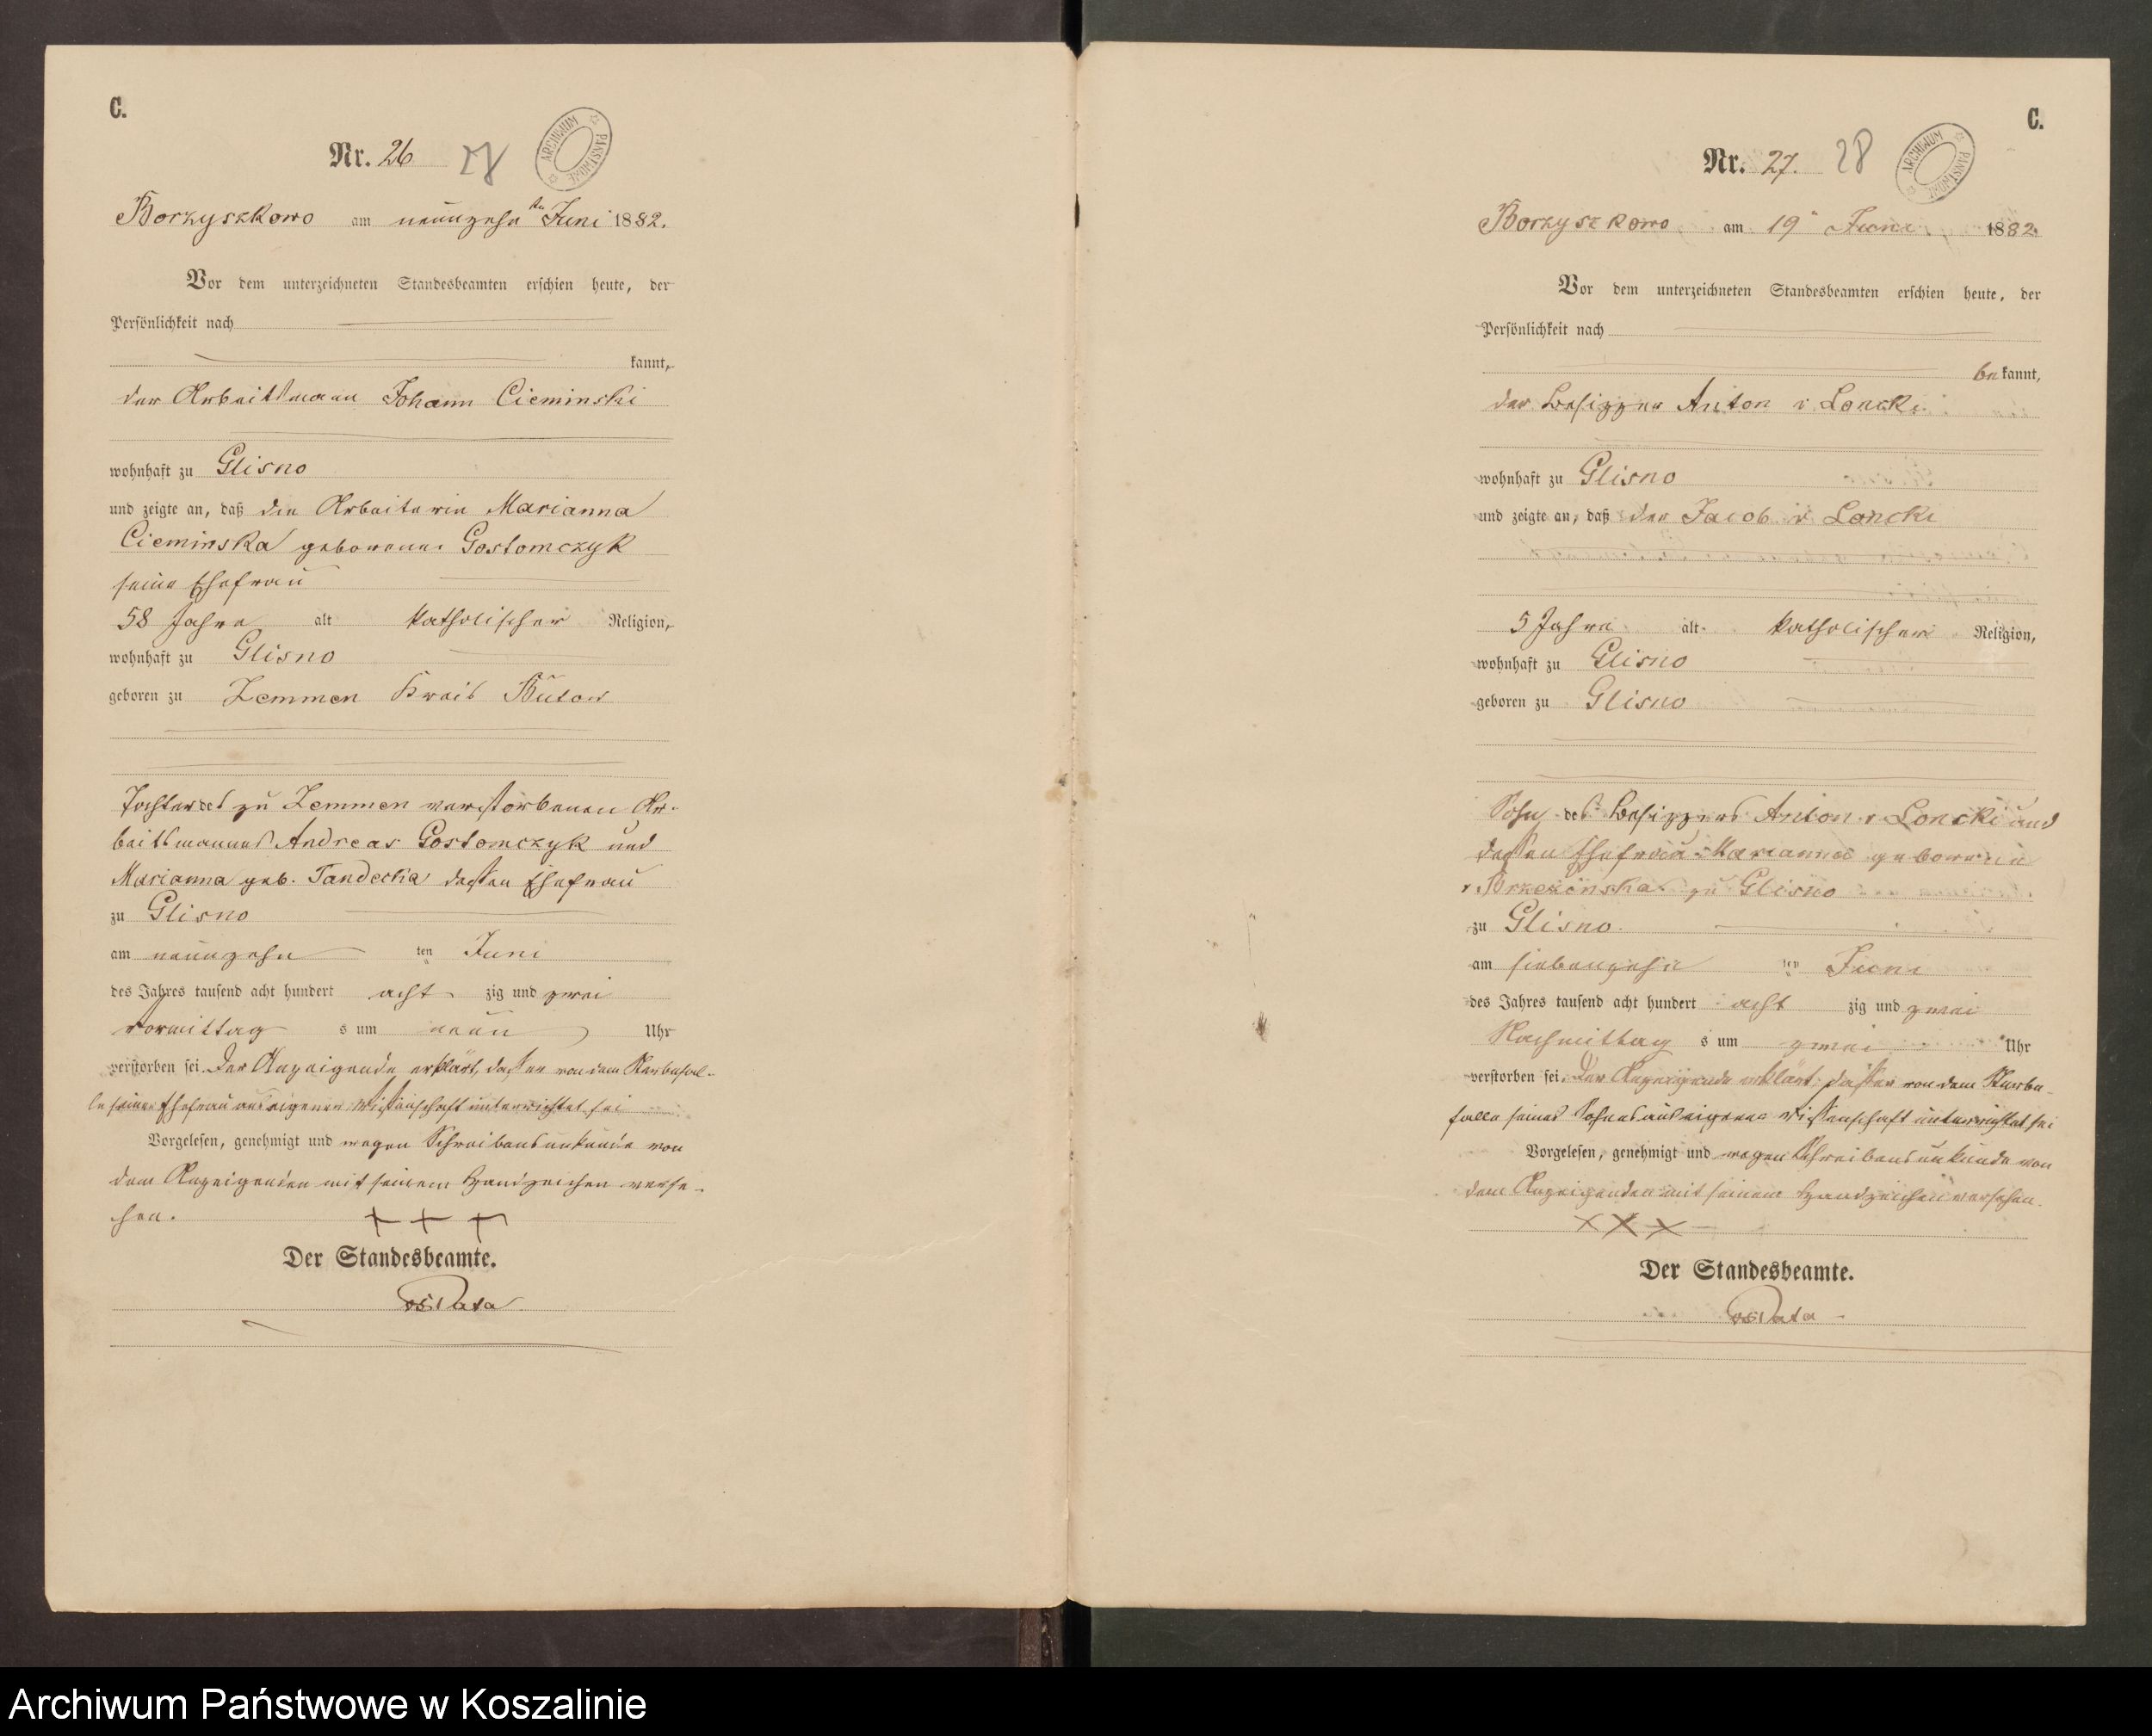 C.
Nr. 26
ARCHIWUM PAŃSTWOWE
Borzyszkowo am neunzehn ten Juni 1882.
Vor dem unterzeichneten Standesbeamten erschien heute, der
Persönlichkeit nach
kannt,
der Arbeitsmann Johann Cieminski
wohnhaft zu Glisno
und zeigte an, daß die Arbeiterin Marianna
Cieminska geborene Gostomczyk
seine Ehefrau
58 Jahre alt katholischer Religion,
wohnhaft zu Glisno
geboren zu Zemmen Kreis Bütow
Tochter des zu Zemmen verstorbenen Ar-
beitsmannes Andreas Gostomczyk und
Marianna geb. dessen Ehefrau
zu Glisno
am neunzehn ten Juni
des Jahres tausend acht hundert acht zig und zwei
Vormittag s um neun Uhr
verstorben sei. Der Anzeigende erklärt, daß er von dem Sterbefal-
le seiner Ehefrau aus eigener Wissenschaft unterrichtet sei
Vorgelesen, genehmigt und wegen Schreibensunkunde von
dem Anzeigenden mit seinem Handzeichen verse-
hen.
+ + +
Der Standesbeamte.
C.
Nr. 27. 28
ARCHIWUM PAŃSTWOWE
Borzyszkowo am 19" Juni 1882.
Vor dem unterzeichneten Standesbeamten erschien heute, der
Persönlichkeit nach
bekannt,
der Besitzer Anton v Loncki
wohnhaft zu Glisno
und zeigte an, daß der Jacob v Loncki
5 Jahre alt katholischer Religion,
wohnhaft zu Glisno
geboren zu Glisno
Sohn des Besitzers Anton v Loncki und
dessen Ehefrau Marianna geborene
v zu Glisno
zu Glisno
am siebenzehn ten Juni
des Jahres tausend acht hundert acht zig und zwei
Nachmittag s um zwei Uhr
verstorben sei. Der Anzeigende erklärt, daß er von dem Sterbe-
falle seines Sohnes aus eigener Wissenschaft unterrichtet sei
Vorgelesen, genehmigt und wegen Schreibensunkunde von
dem Anzeigenden mit seinem Handzeichen versehen.
X X X
Der Standesbeamte.
Archiwum Państwowe w Koszalinie